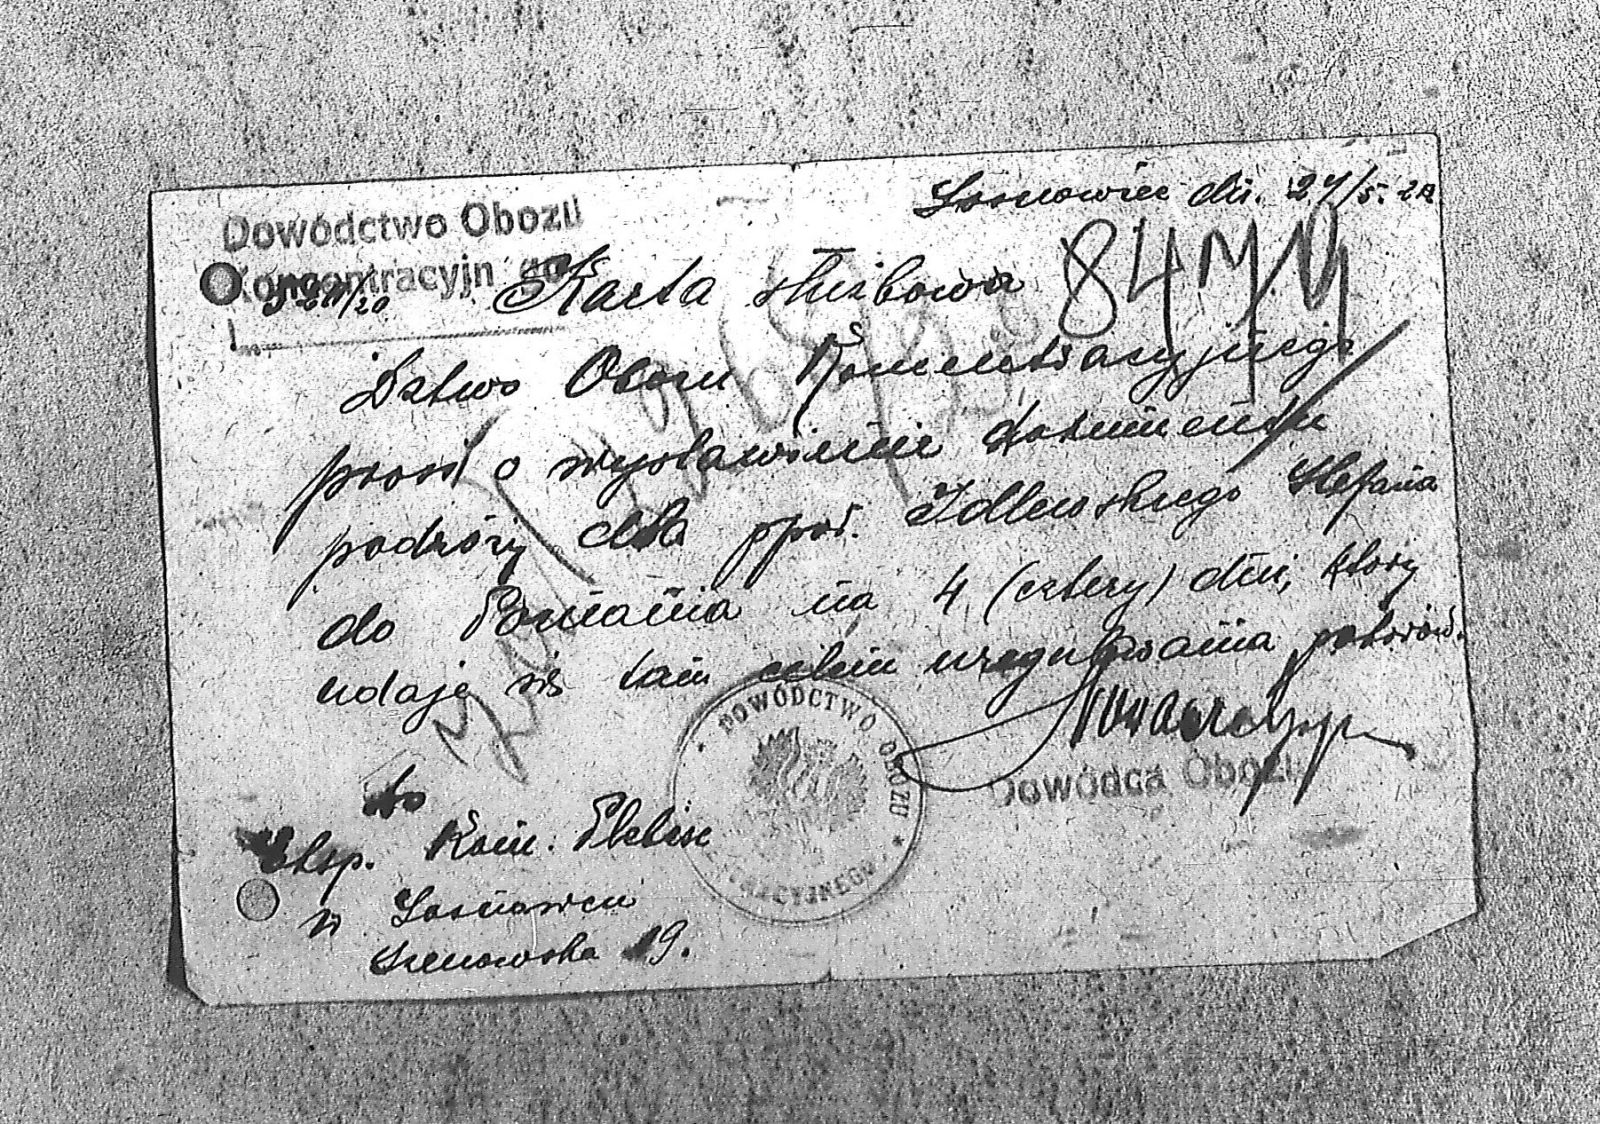 Dowództwo Obozu
Koncentracyjnego
Sosnowiec dn. 27/5. 20
Karta służbowa
84 M/9
Dztwo Obozu Koncentracyjnego
prosi o wystawienie dokumentu
podróży dla ppor. Idlewskiego Stefana
do Poznania na 4 (cztery) dni, który
udaje się tam celem uregulowania poborów.
DOWÓDCTWO OBOZU
Dowódca Obozu
do
Eksp. Kom. Plebisc
w Sosnowcu
19.